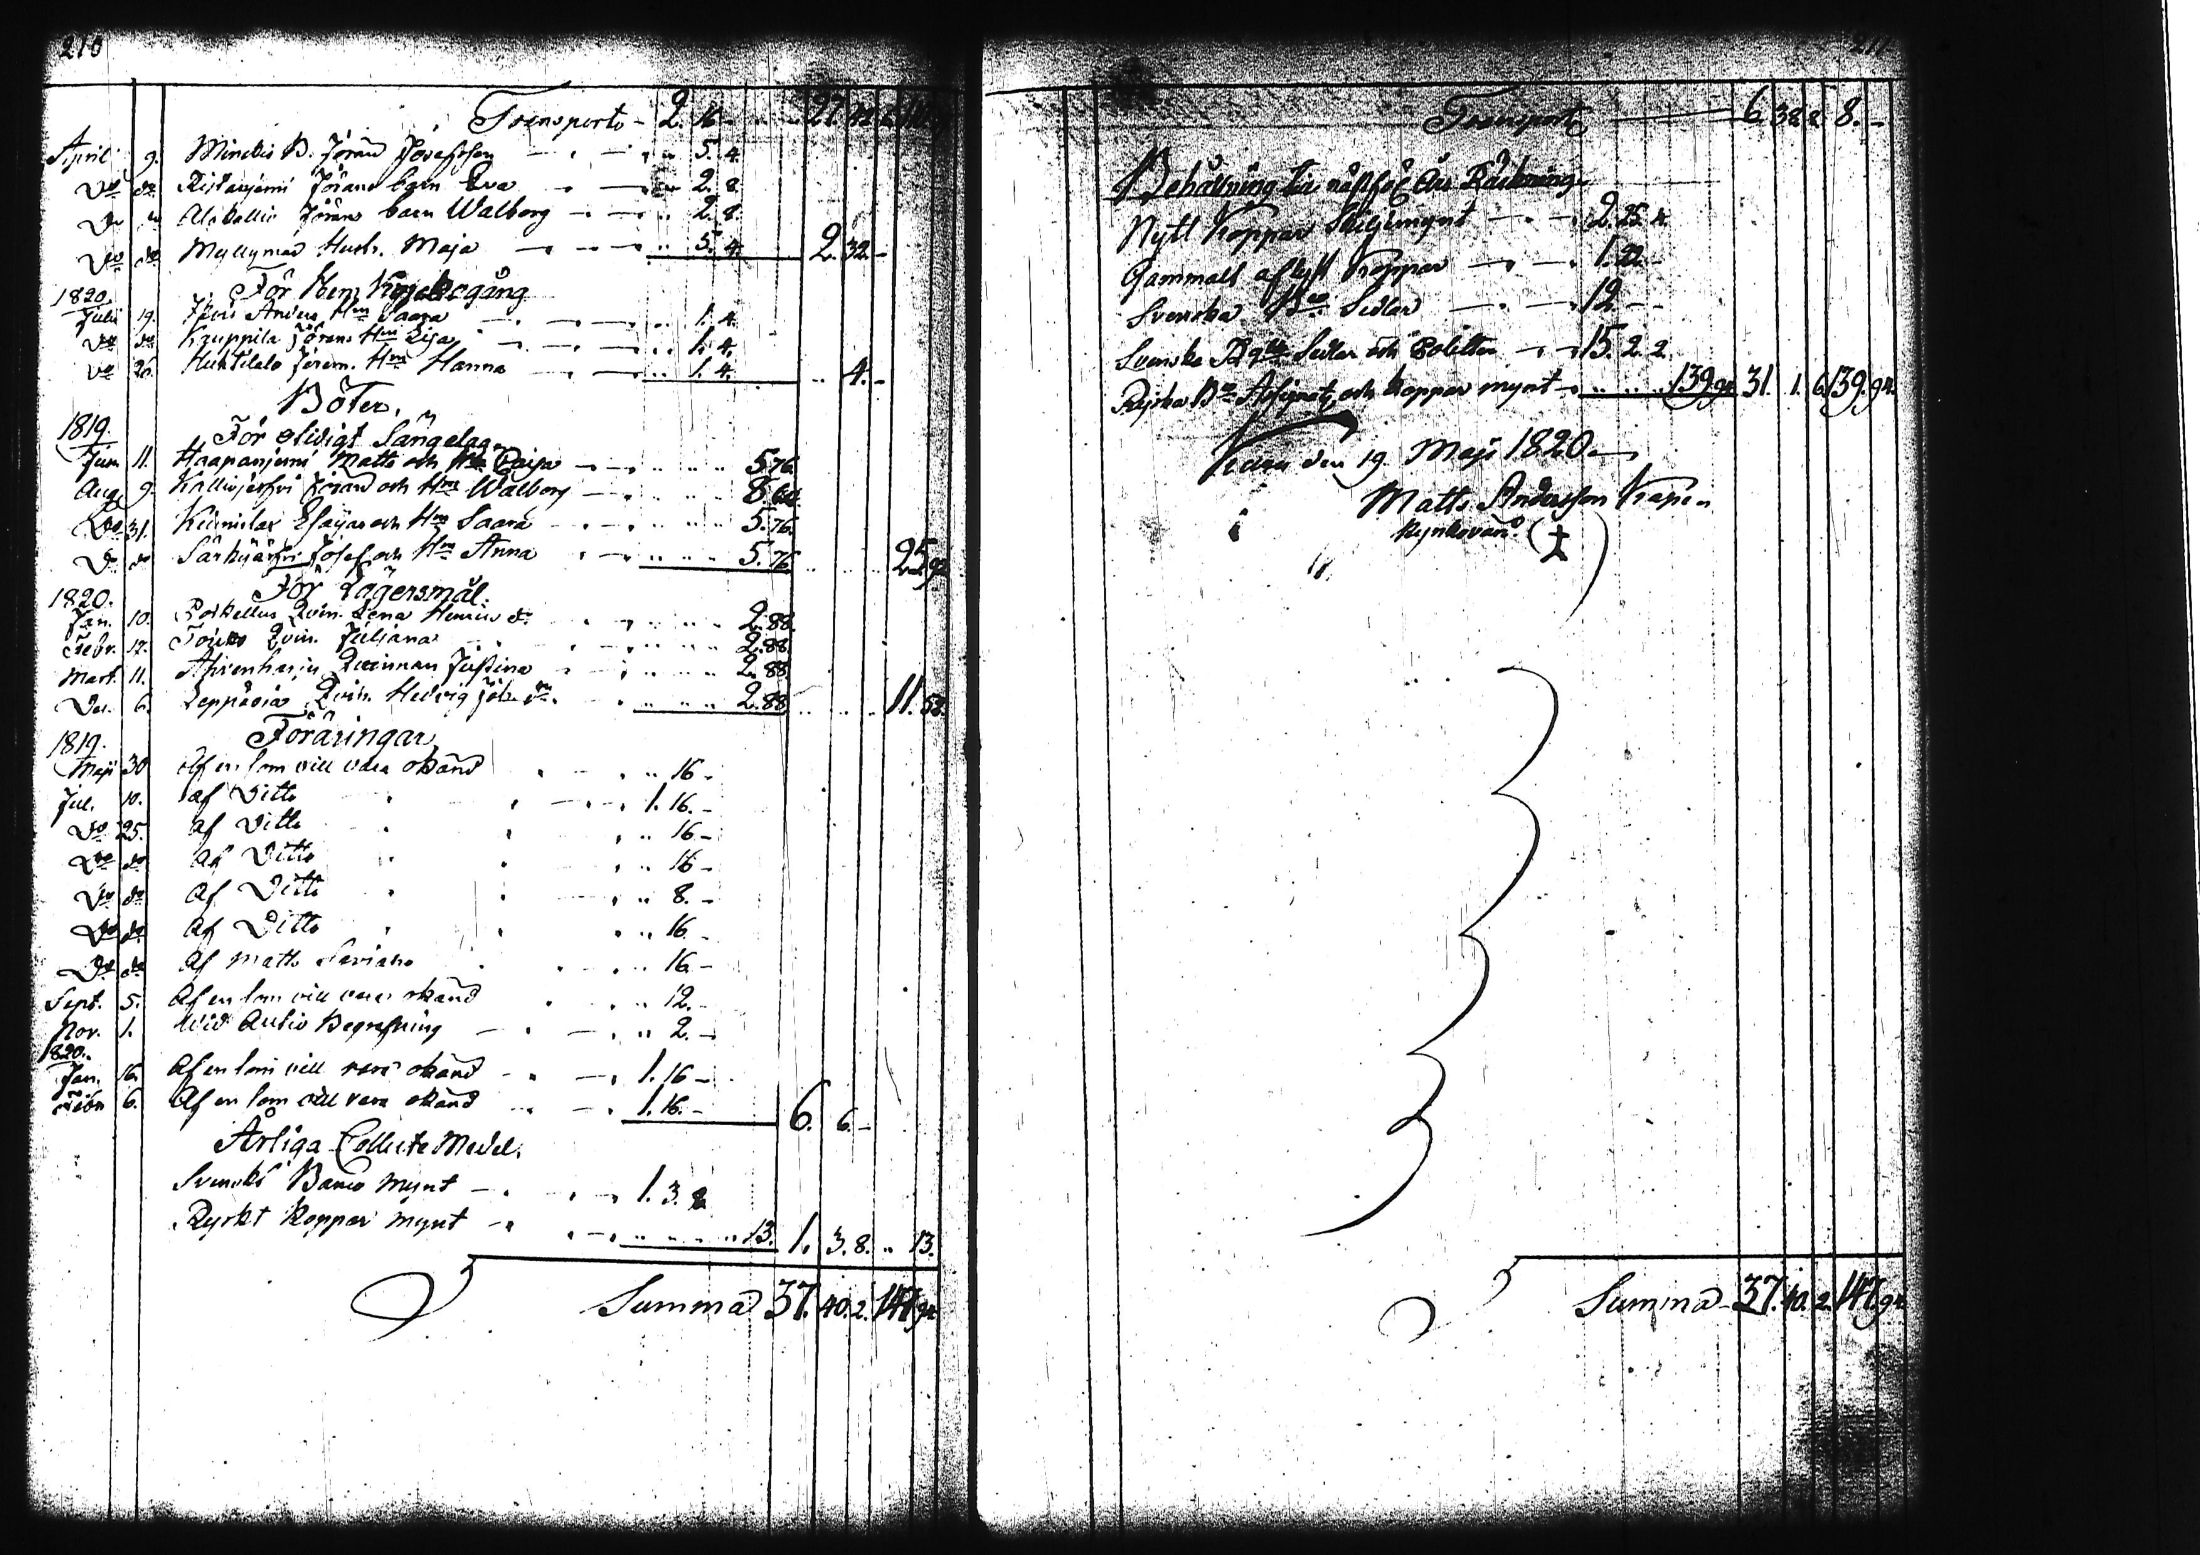 210
Transporto 2. 16 27.
April 9. B. Jöran Josefsson 5. 4.
Do do Ristanjemi Jörans barn Eva 2. 8.
Do do Alakallio Jörans barn Walborg 2. 8.
Do do Myllymas Hustr. Maja 5. 4. 2. 32.
För Hem Kyrkogång
1820.
Julii 19. Anders Hru Saara 1. 4.
Do do Kauppila Jörans Hru Lisa 1. 4.
Do 26. Huhtilalo Jerem. Hru Hanna 1. 4. 4.
Böter.
1819. För otidigt Sängelag
Jun. 11. Haapanjemi Matts och Hru Caisa 5.76
Aug. 9. Kalliojerfvi Jöran och Hru Walborg 8.64.
Do 31. Esaias och Hru Saara 5.76.
Do do Särkijärfvi Josef och Hru Anna 5.76 25.92
1820. För Lägersmål.
Jan. 10. Qvin. Lena Henrics dr. 2.88.
Febr. 12. Qvin. Juliana 2.88.
Mart. 11. Qvinnan Justina 2.88.
Do 6. Leppäoja Qvin. Hedvig 2.88 11.52.
1819. Föräringar
Maji 30 Af en som vill vara okänd 16
Jul. 10. af Ditto 1. 16.
Do 25. af Ditto 16
Do do af Ditto 16
Do do af Ditto 8.
Do do af Ditto 16
Do do af Matts 16
Sept. 5. Af en som vill vara okänd 12.
Nov. 1. Wid Autio Begrafning 2.
1820.
Jan. 16. Af en som vill vara okänd 1. 16
Febr 6. Af en som vill vara okänd 1. 16. 6. 6.
Årliga Collecte Medel.
Svenskt Banco Mynt 1. 3. 8
Ryskt Koppar mynt 13. 1. 3. 8. 13.
Summa 37. 40. 2. 147 94
211
Transport 6. 38. 2 8.
Behållning til nästföl. Års Räkning
Nytt Koppar Skiljemynt 2. 25. 4
Gammalt aflyst Koppar 1. 22.
Svenska Bco Sedlar 12
Svenska Rgds Sedlar och Poletter 15. 2. 2.
Ryska Bco Assignat. och Koppar mynt 139.94. 31. 1. 6 139. 94.
den 19 Maji 1820
Matts Andersson
Summa 37. 40. 2. 147 94